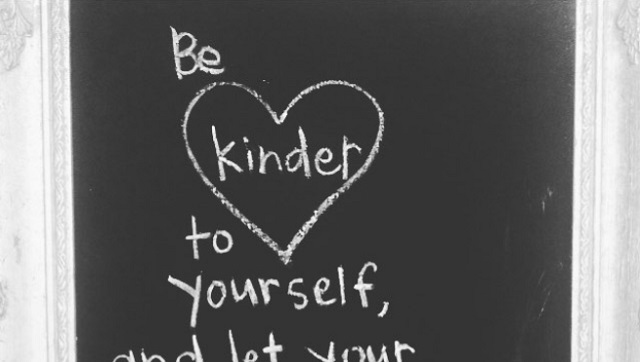 Be
kinder
to
yourself,
and let your